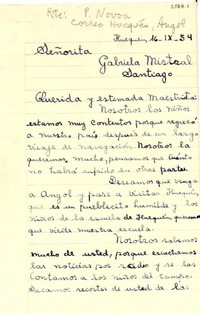 Rte: P. Novoa
Correo Huequén, Angol
Huequén, 16-IX-54
Señorita
Gabriela Mistral
Santiago
Querida y estimada Maestrita:
Nosotros los niños
estamos muy contentos porque regresó
a nuestro país después de un largo
viaje de navegación. Nosotros la
queremos mucho, pensamos que cuánto
no habrá sufrido en otras partes.
Deseamos que venga
a Angol y pase a visitar Huequén,
que es un pueblecito humilde y los
niños de la escuela de Huequén, queremos
que visite nuestra escuela.
Nosotros sabemos
mucho de usted, porque escuchamos
las noticias por radio y se las
contamos a los niños del campo.
Sacamos recortes de usted de las